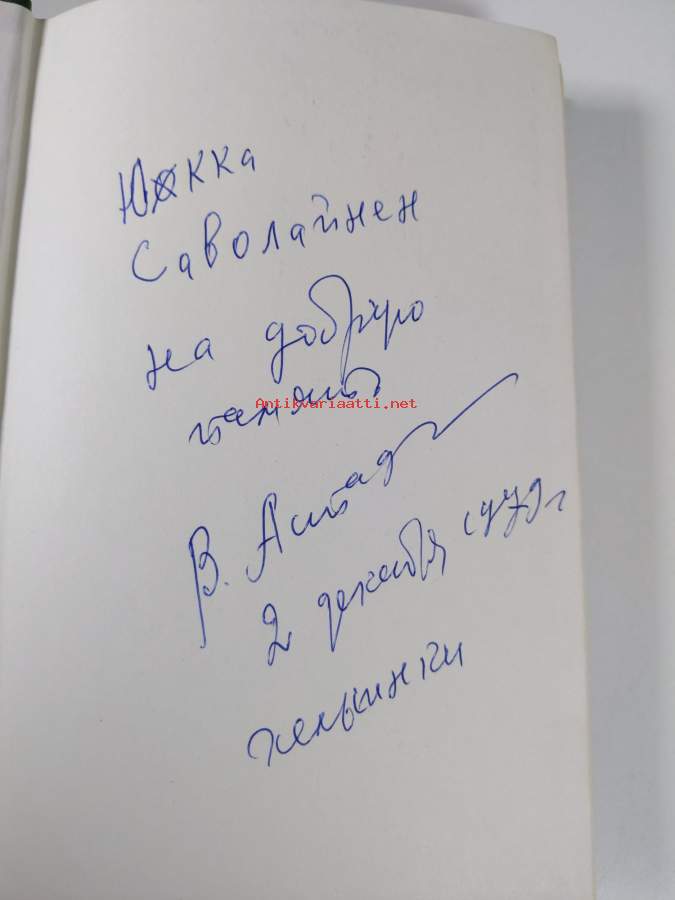 Юкка
Саволайнен
на добрую
память
Antikvariaatti.net
В. Астаф
2 декабря 1979 г
Хельсинки